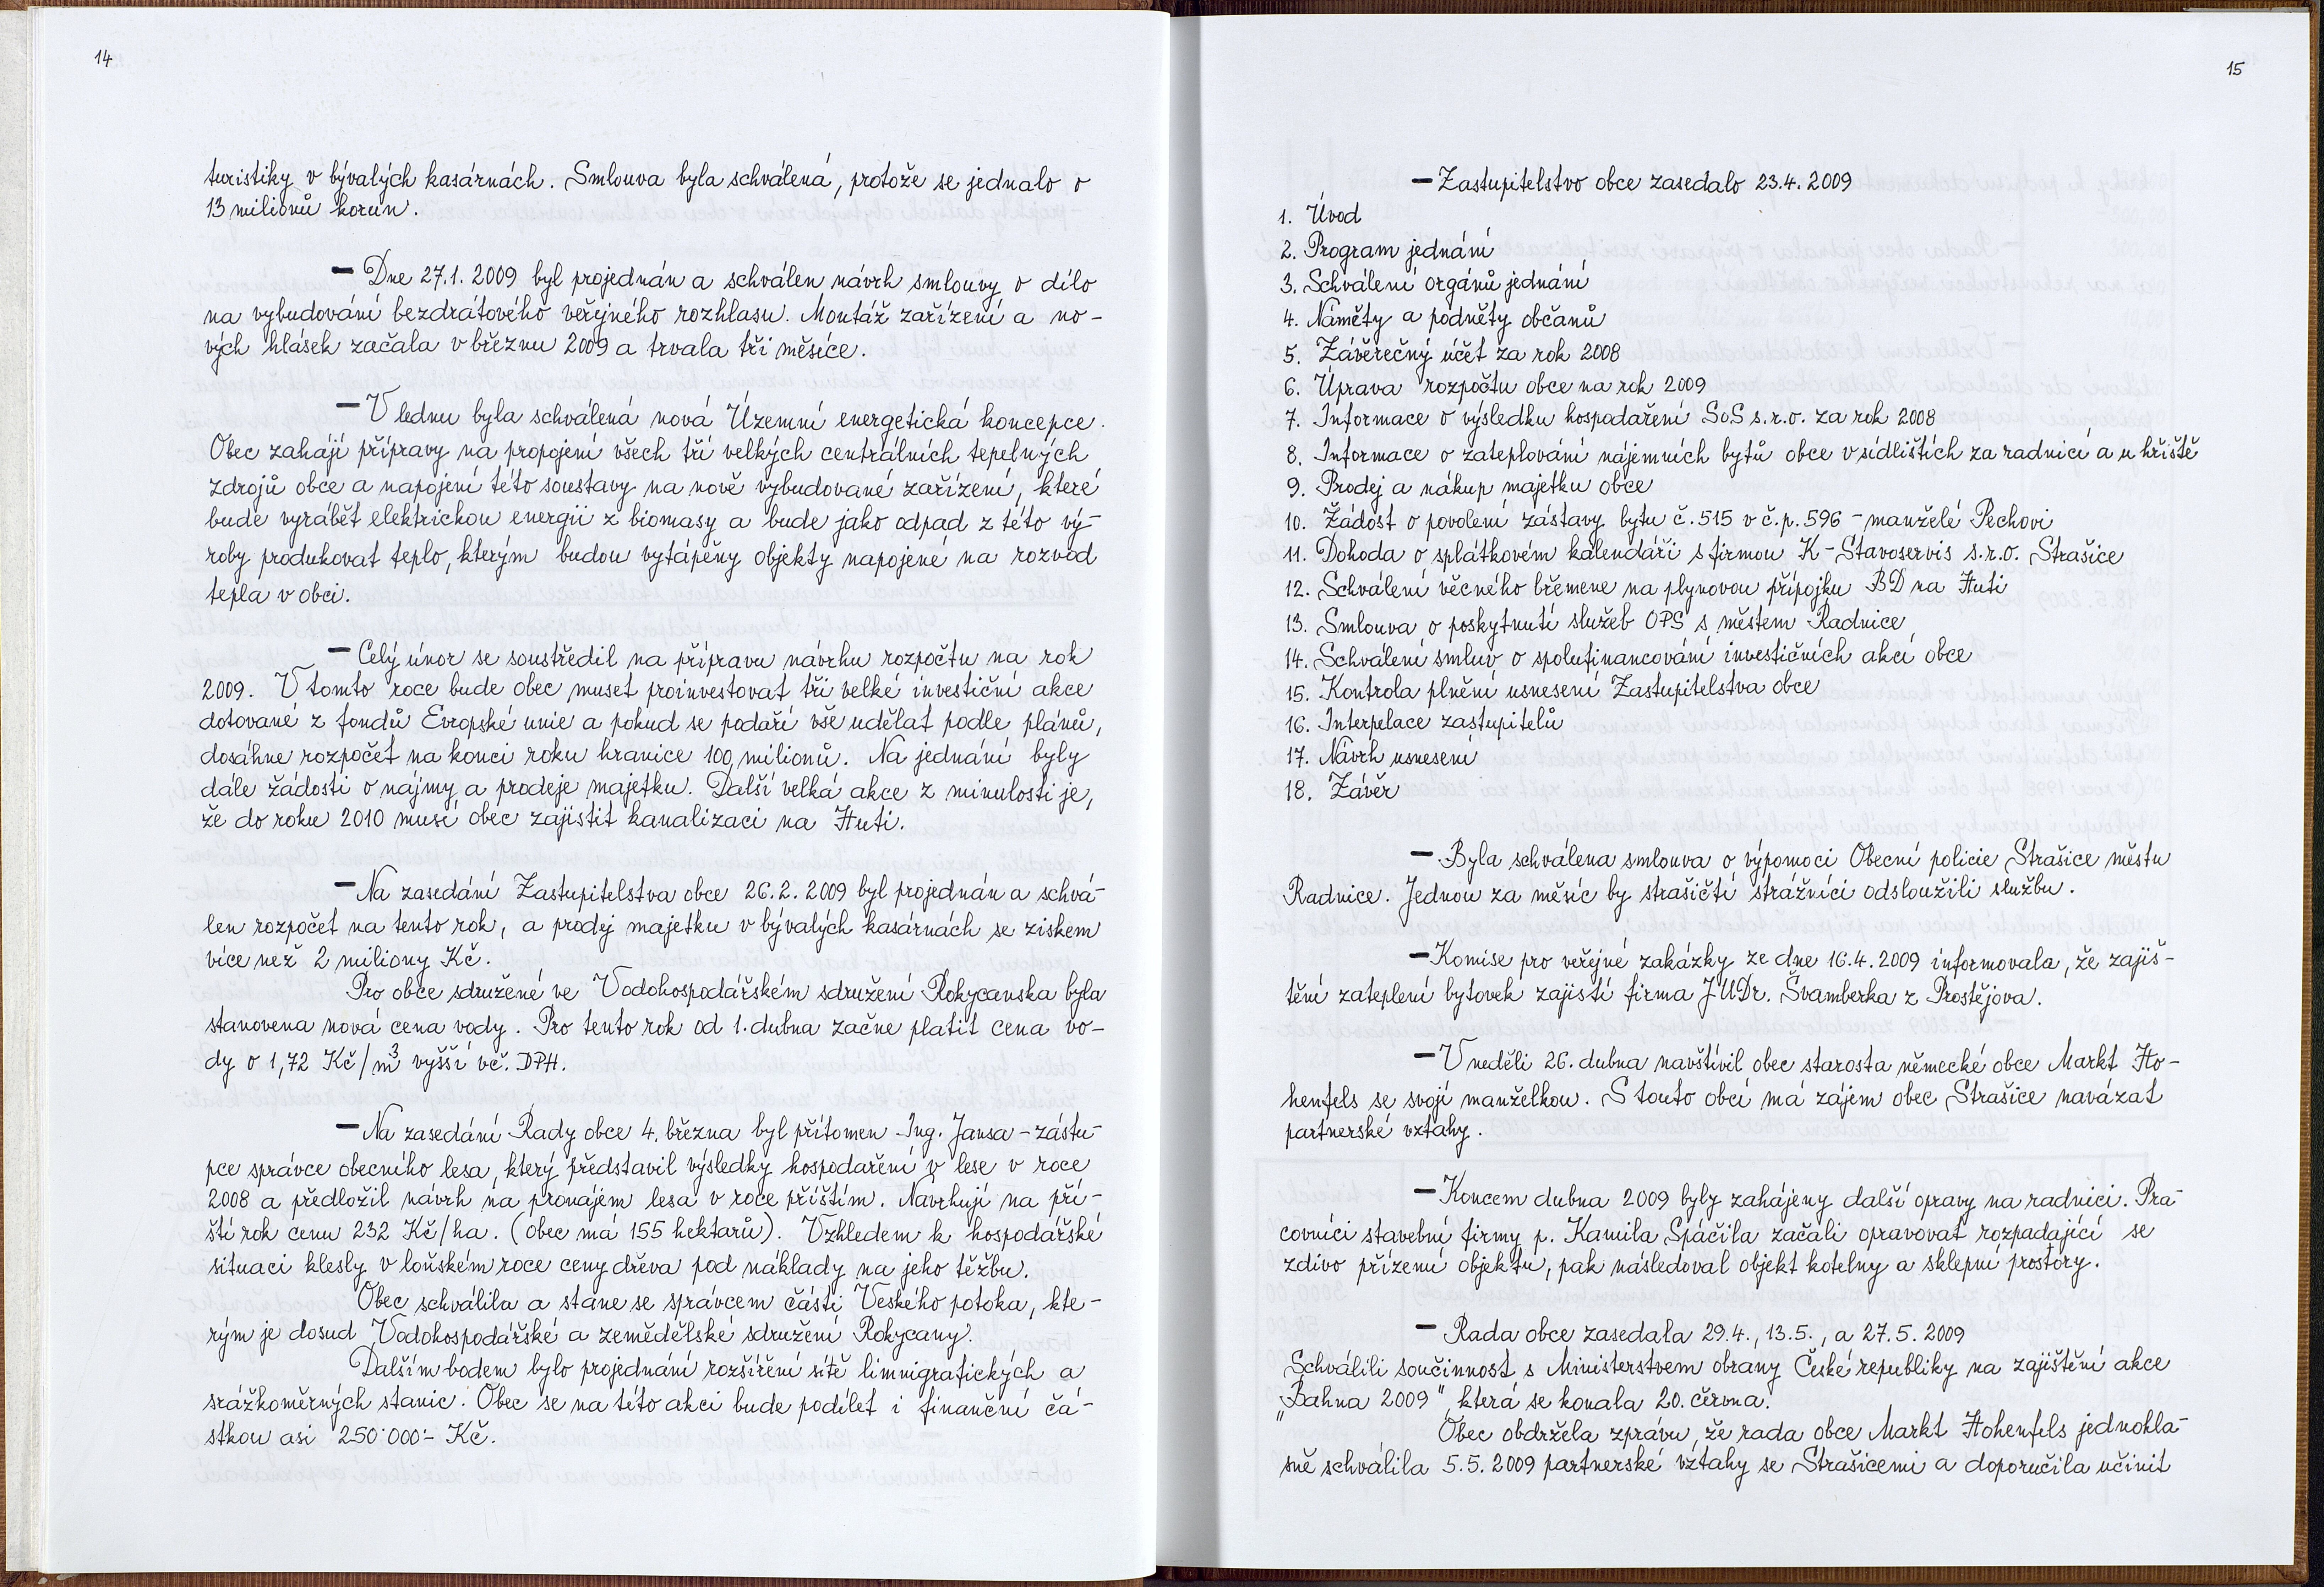 14
turistiky v bývalých kasárnách. Smlouva byla schválená, protože se jednalo o
13 milionů korun.
— Dne 27.1. 2009 byl projednán a schválen návrh smlouvy o dílo
na vybudování bezdrátového veřejného rozhlasu. Montáž zařízení a no-
vých hlásek začala v březnu 2009 a trvala tři měsíce.
— V lednu byla schválená nová Územní energetická koncepce.
Obec zahájí přípravy na propojení všech tří velkých centrálních tepelných
zdrojů obce a napojení této soustavy na nově vybudované zařízení, které
bude vyrábět elektrickou energii z biomasy a bude jako odpad z této vý-
roby produkovat teplo, kterým budou vytápěny objekty napojené na rozvod
tepla v obci.
— Celý únor se soustředil na přípravu návrhu rozpočtu na rok
2009. V tomto roce bude obec muset proinvestovat tři velké investiční akce
dotované z fondů Evropské unie a pokud se podaří vše udělat podle plánů,
dosáhne rozpočet na konci roku hranice 100 milionů. Na jednání byly
dále žádosti o nájmy a prodeje majetku. Další velká akce z minulosti je,
že do roku 2010 musí obec zajistit kanalizaci na Huti.
— Na zasedání Zastupitelstva obce 26.2. 2009 byl projednán a schvá-
len rozpočet na tento rok, a prodej majetku v bývalých kasárnách se ziskem
více než 2 miliony Kč.
Pro obce sdružené ve Vodohospodářském sdružení Rokycanska byla
stanovena nová cena vody. Pro tento rok od 1. dubna začne platit cena vo-
dy o 1,72 Kč/m³ vyšší vč. DPH.
— Na zasedání Rady obce 4. března byl přítomen Ing. Jansa - zástu-
pce správce obecního lesa, který představil výsledky hospodaření v lese v roce
2008 a předložil návrh na pronájem lesa v roce příštím. Navrhují na pří-
ští rok cenu 232 Kč/ha. (obec má 155 hektarů). Vzhledem k hospodářské
situaci klesly v loňském roce ceny dřeva pod náklady na jeho těžbu.
Obec schválila a stane se správcem části Veského potoka, kte-
rým je dosud Vodohospodářské a zemědělské sdružení Rokycany.
Dalším bodem bylo projednání rozšíření sítě limnigrafických a
srážkoměrných stanic. Obec se na této akci bude podílet i finanční čá-
stkou asi 250.000.- Kč.
15
— Zastupitelstvo obce zasedalo 23.4. 2009
1. Úvod
2. Program jednání
3. Schválení orgánů jednání
4. Náměty a podněty občanů
5. Závěrečný účet za rok 2008
6. Úprava rozpočtu obce na rok 2009
7. Informace o výsledku hospodaření SoS s.r.o. za rok 2008
8. Informace o zateplování nájemních bytů obce v sídlištích za radnicí a u hřiště
9. Prodej a nákup majetku obce
10. Žádost o povolení zástavy bytu č. 515 v č.p. 596 - manželé Pechovi
11. Dohoda o splátkovém kalendáři s firmou K-Stavoservis s.r.o. Strašice
12. Schválení věcného břemene na plynovou přípojku BD na Huti
13. Smlouva o poskytnutí služeb OPS s městem Radnice
14. Schválení smluv o spolufinancování investičních akcí obce
15. Kontrola plnění usnesení Zastupitelstva obce
16. Interpelace zastupitelů
17. Návrh usnesení
18. Závěr
— Byla schválena smlouva o výpomoci Obecní policie Strašice městu
Radnice. Jednou za měsíc by strašičtí strážníci odsloužili službu.
— Komise pro veřejné zakázky ze dne 16.4. 2009 informovala, že zajiš-
tění zateplení bytovek zajistí firma JUDr. Švamberka z Prostějova.
— V neděli 26. dubna navštívil obec starosta německé obce Markt Ho-
henfels se svojí manželkou. S touto obcí má zájem obec Strašice navázat
partnerské vztahy.
— Koncem dubna 2009 byly zahájeny další opravy na radnici. Pra-
covníci stavební firmy p. Kamila Spáčila začali opravovat rozpadající se
zdivo přízemí objektu, pak následoval objekt kotelny a sklepní prostory.
— Rada obce zasedala 29.4., 13.5., a 27.5. 2009
Schválili součinnost s Ministerstvem obrany České republiky na zajištění akce
„Bahna 2009", která se konala 20. června.
Obec obdržela zprávu, že rada obce Markt Hohenfels jednohla-
sně schválila 5.5. 2009 partnerské vztahy se Strašicemi a doporučila učinit